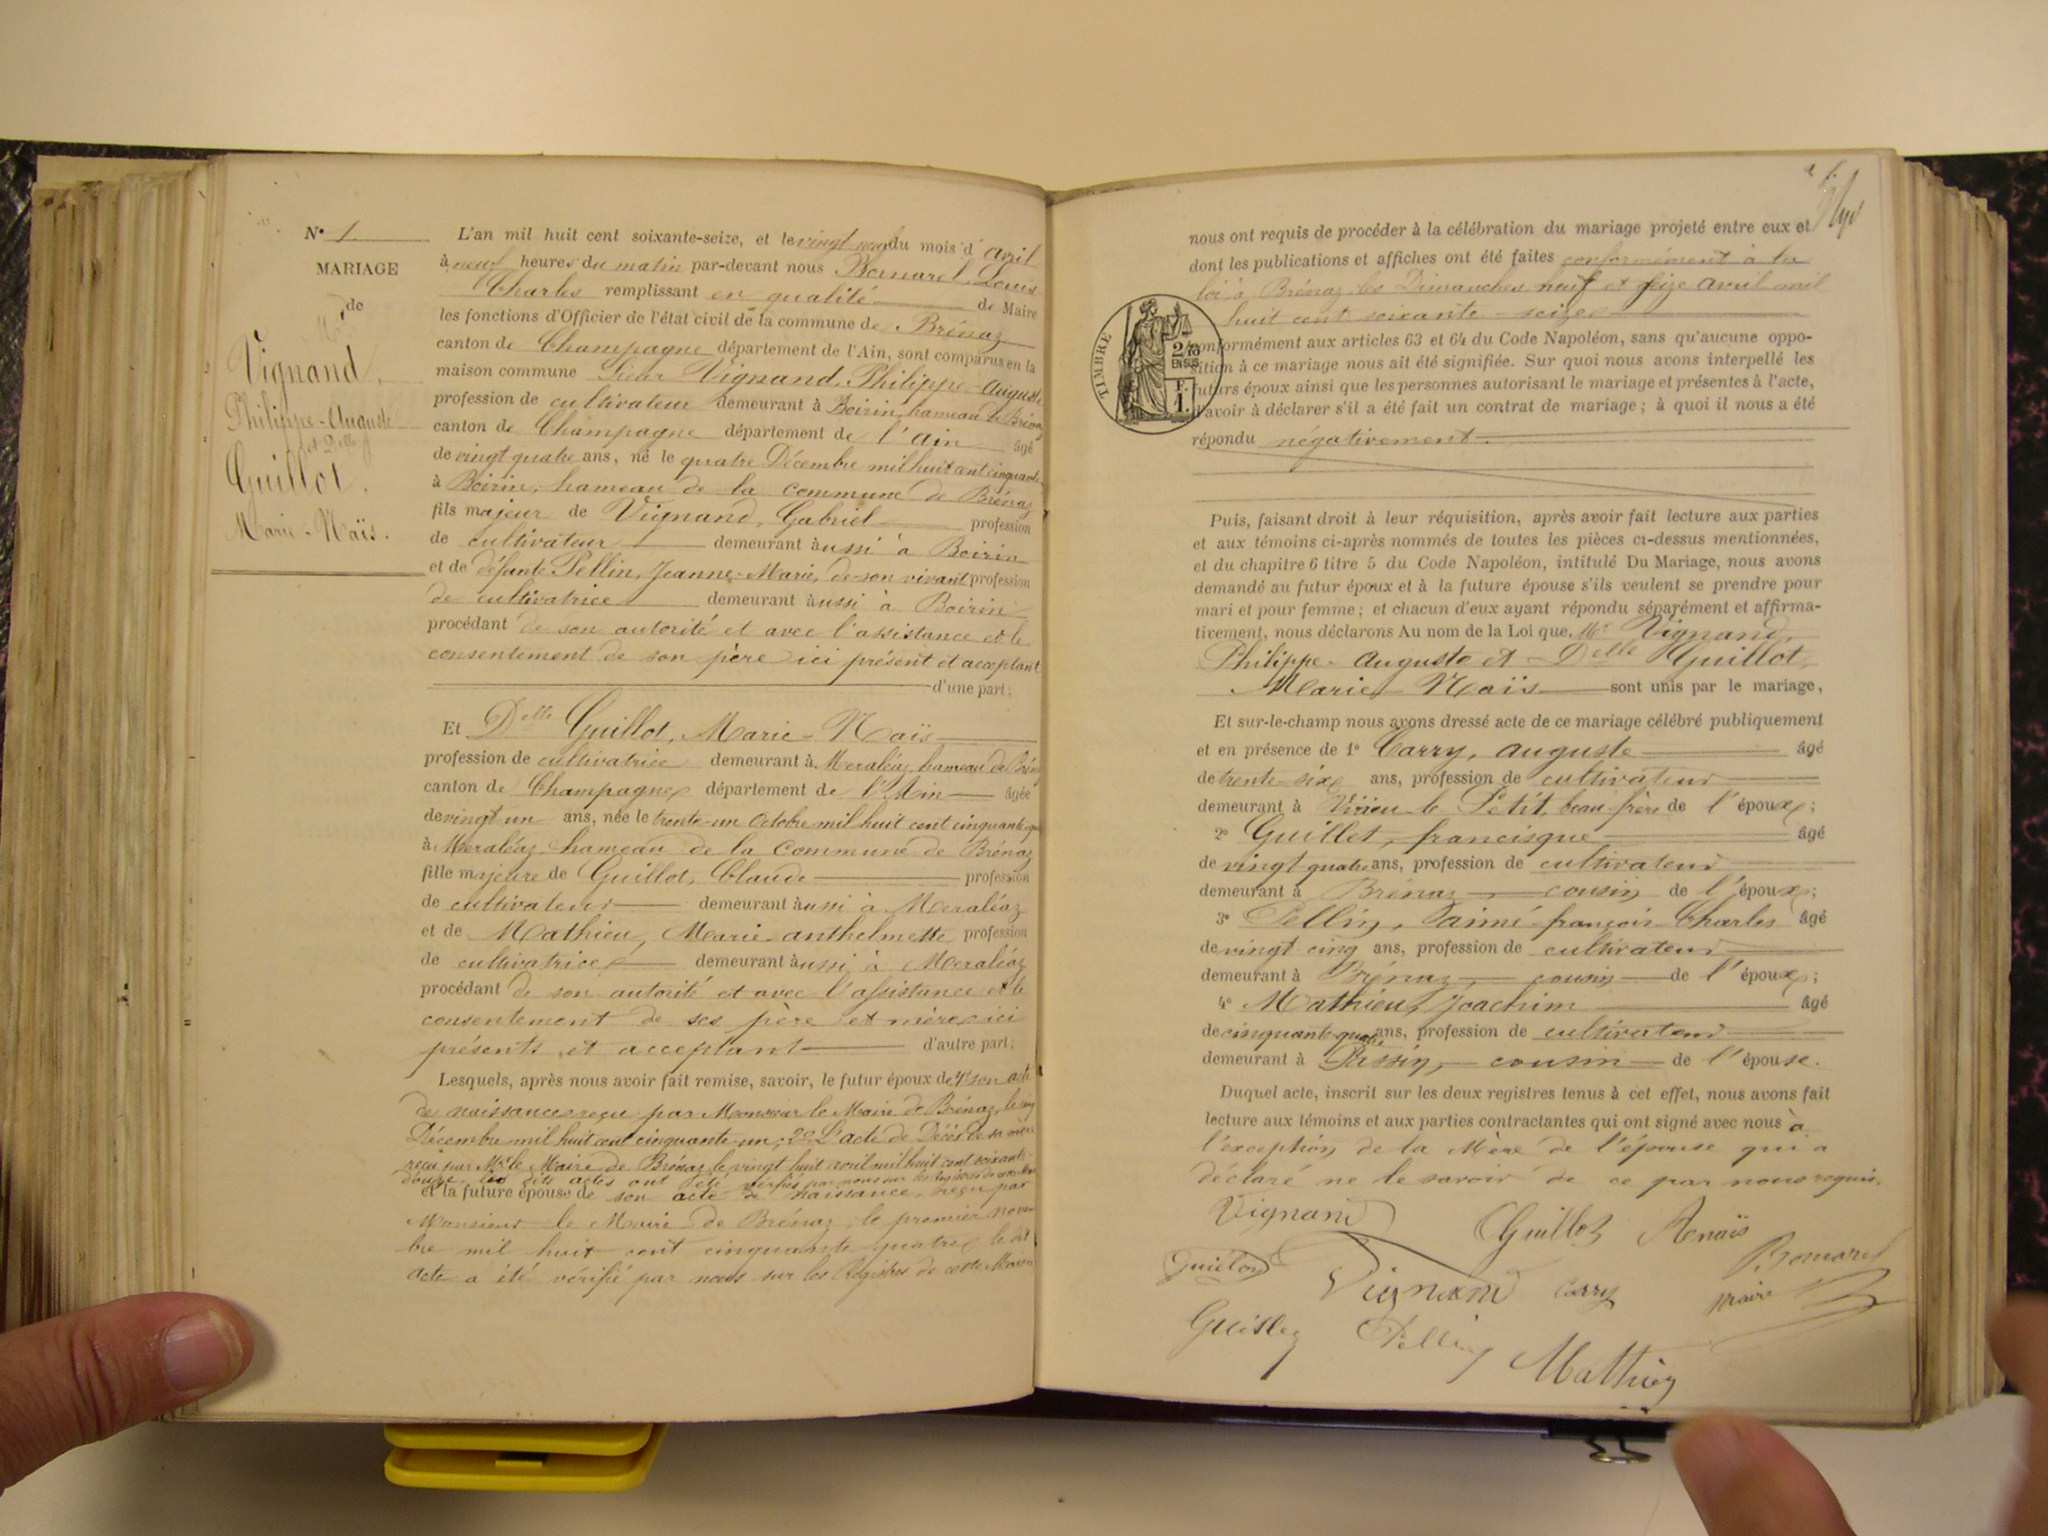 N° 1
MARIAGE
de
Vignand,
Philippe-Auguste
et Delle
Guillot.
Marie-Naïs.
L'an mil huit cent soixante-seize, et le vingt neuf du mois d'avril
à neuf heures du matin par-devant nous Bomarel, Louis
Charles remplissant en qualité de Maire
les fonctions d'Officier de l'état civil de la commune de Brénaz
canton de Champagne département de l'Ain, sont comparus en la
maison commune Sieur Vignand, Philippe-Auguste
profession de cultivateur demeurant à Boirin, hameau de Brénaz
canton de Champagne département de l'Ain âgé
de vingt quatre ans, né le quatre Décembre mil huit cent cinquante
à Boirin, hameau de la commune de Brénaz
fils majeur de Vignand, Gabriel profession
de cultivateur demeurant aussi à Boirin
et de défunte Pellin, Jeanne-Marie, de son vivant profession
de cultivatrice demeurant aussi à Boirin
procédant de son autorité et avec l'assistance et le
consentement de son père ici présent et acceptant
d'une part;
Et Delle Guillot, Marie-Naïs
profession de cultivatrice demeurant à Meraléaz hameau de Brénaz
canton de Champagne département de l'Ain âgée
de vingt un ans, née le trente-un Octobre mil huit cent cinquante qua
à Meraléaz hameau de la Commune de Brénaz
fille majeure de Guillot, Claude profession
de cultivateur demeurant aussi à Meraléaz
et de Mathieu, Marie-anthelmette profession
de cultivatrice demeurant aussi à Meraléaz
procédant de son autorité et avec l'assistance et le
consentement de ses père et mère ici
présents et acceptant d'autre part;
Lesquels, après nous avoir fait remise, savoir, le futur époux de 1° son acte
de naissance reçu par Monsieur le Maire de Brénaz, le cinq
Décembre mil huit cent cinquante-un; 2° L'acte de Décès de sa mère
reçu par Mr le Maire de Brénaz le vingt huit avril mil huit cent soixante-
douze. les dits actes ont été vérifiés par nous sur les Registres de cette Mairie
et la future épouse de son acte de naissance, reçu par
Monsieur le Maire de Brénaz, le premier novem
bre mil huit cent cinquante quatre le dit
acte a été vérifié par nous sur les Registres de cette Mairie
nous ont requis de procéder à la célébration du mariage projeté entre eux et
dont les publications et affiches ont été faites conformément à la
loi à Brénaz les Dimanches neuf et seize avril mil
huit cent soixante-seize
TIMBRE
conformément aux articles 63 et 64 du Code Napoléon, sans qu'aucune oppo-
sition à ce mariage nous ait été signifiée. Sur quoi nous avons interpellé les
futurs époux ainsi que les personnes autorisant le mariage et présentes à l'acte,
d'avoir à déclarer s'il a été fait un contrat de mariage; à quoi il nous a été
répondu négativement.
Puis, faisant droit à leur réquisition, après avoir fait lecture aux parties
et aux témoins ci-après nommés de toutes les pièces ci-dessus mentionnées,
et du chapitre 6 titre 5 du Code Napoléon, intitulé Du Mariage, nous avons
demandé au futur époux et à la future épouse s'ils veulent se prendre pour
mari et pour femme; et chacun d'eux ayant répondu séparément et affirma-
tivement, nous déclarons Au nom de la Loi que, Mr Vignand,
Philippe-Auguste et Delle Guillot,
Marie-Naïs sont unis par le mariage,
Et sur-le-champ nous avons dressé acte de ce mariage célébré publiquement
et en présence de 1° Carry, auguste âgé
de trente-six ans, profession de cultivateur
demeurant à Virieu-le-Petit, beau-frère de l'époux;
2° Guillet, francisque âgé
de vingt quatre ans, profession de cultivateur
demeurant à Brénaz cousin de l'époux;
3° Pellin, aimé-françois-Charles âgé
de vingt cinq ans, profession de cultivateur
demeurant à Brénaz, cousin de l'époux;
4° Mathieu, Joachim âgé
de cinquante-quatre ans, profession de cultivateur
demeurant à Passin, cousin de l'épouse.
Duquel acte, inscrit sur les deux registres tenus à cet effet, nous avons fait
lecture aux témoins et aux parties contractantes qui ont signé avec nous à
l'exception de la Mère de l'épouse qui a
déclaré ne le savoir de ce par nous requis.
Vignand
Guillot Anaïs
Bomarel
maire
Vignand Carry
Pellin
Mathieu